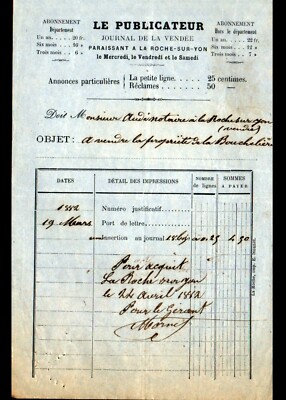 ABONNEMENT
Département
Un an. 20 fr.
Six mois. 10 »
Trois mois. 6 »
LE PUBLICATEUR
JOURNAL DE LA VENDÉE
PARAISSANT A LA ROCHE-SUR-YON
le Mercredi, le Vendredi et le Samedi
ABONNEMENT
Hors du Départem.
Un an. 22 fr.
Six mois. 12 »
Trois mois. 7 »
Annonces particulières { La petite ligne. 25 centimes.
Réclames 50 —
Doit Monsieur notaire à la Roche sur yon
(vendée)
OBJET : à vendre la propriété de la
DATES DÉTAIL DES IMPRESSIONS NOMBRE de lignes SOMMES A PAYER
1882 Numéro justificatif
19 Mars Port de lettre
insertion au journal 18 à 0 25 4 50
Pour acquit
La Roche sur yon
le 24 avril 1882
Pour le Gérant